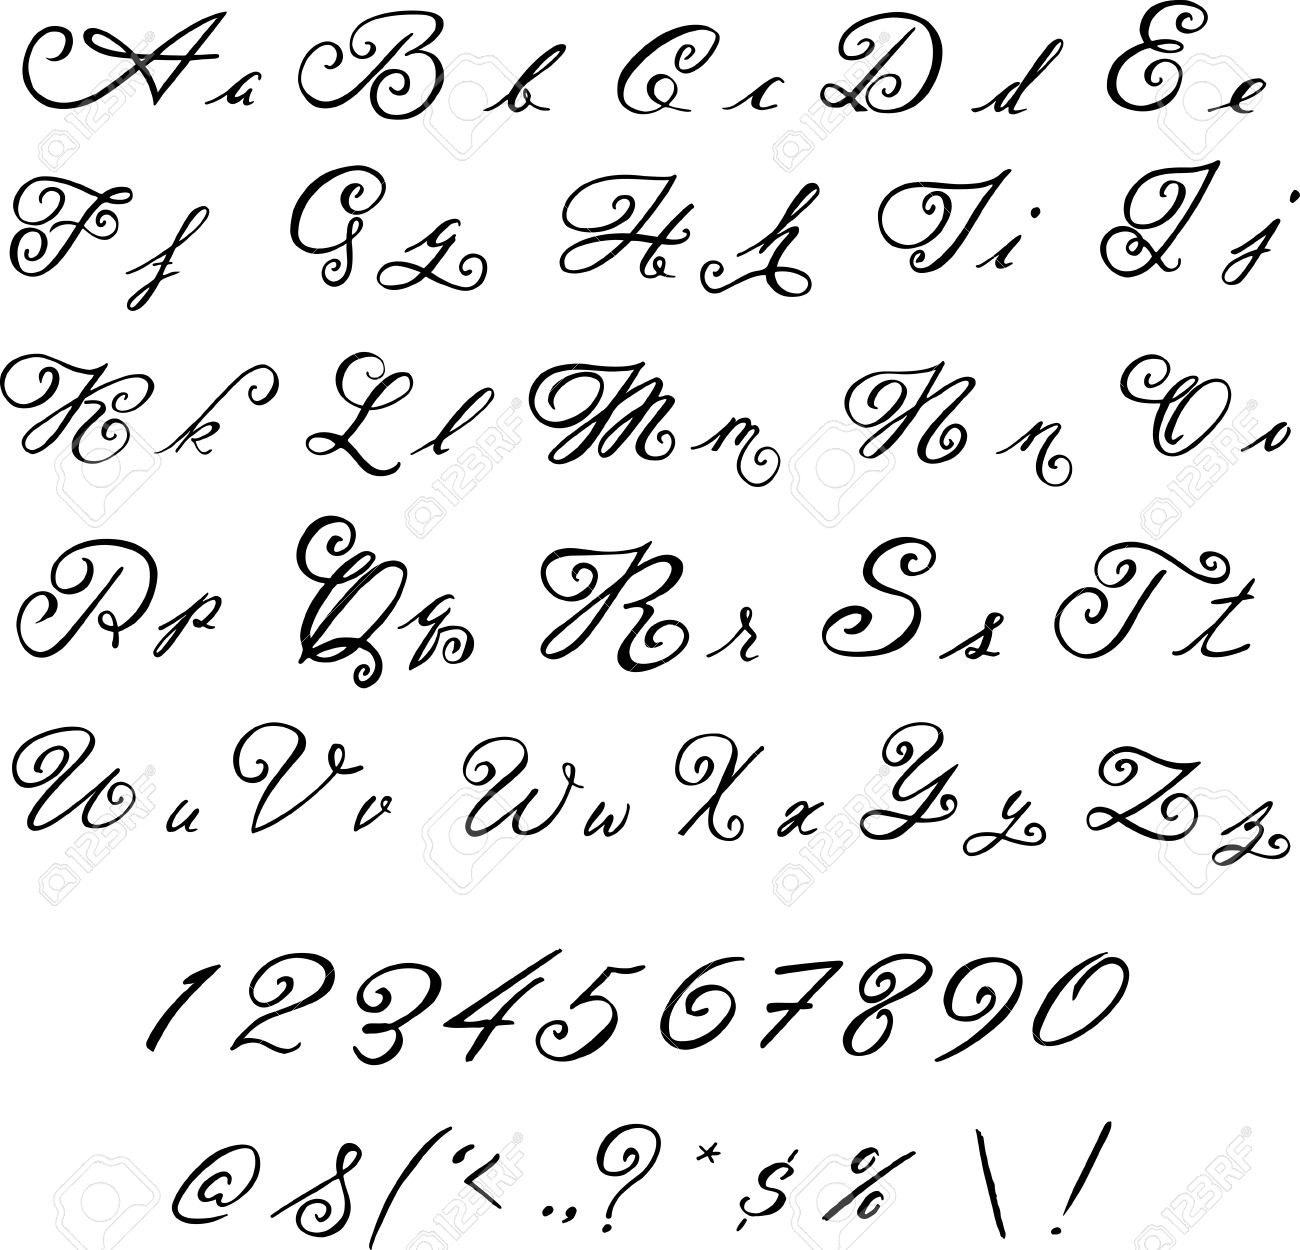 A a B b C c D d E e
F f G g H h I i J j
K k L l M m N n O o
P p Q q R r S s T t
U u V v W w X x Y y Z z
1 2 3 4 5 6 7 8 9 0
@ & ( ‘ < . , ? * $ % \ !